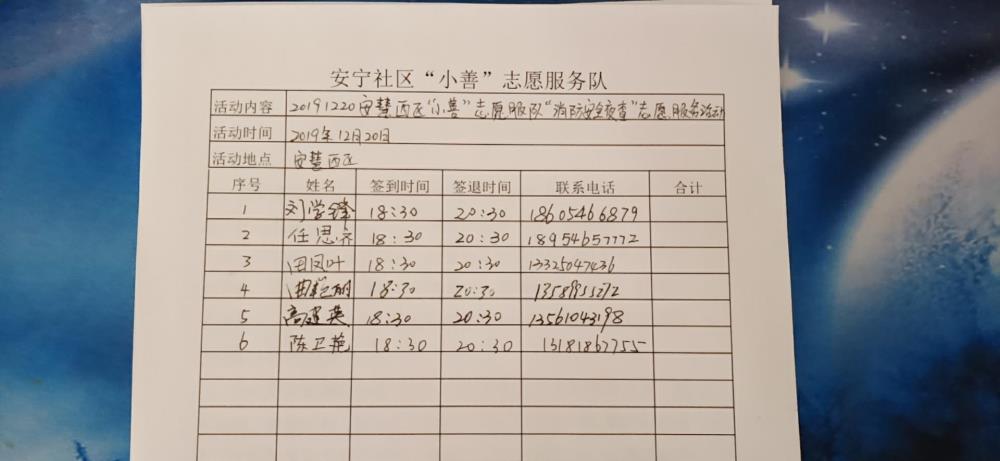 安宁社区“小善”志愿服务队
活动内容 20191220安慧西区“小善”志愿服队“消防安全夜查”志愿服务活动
活动时间 2019年12月20日
活动地点 安慧西区
序号 姓名 签到时间 签退时间 联系电话 合计
1 刘学锋 18:30 20:30 18605466879
2 任思齐 18:30 20:30 18954657772
3 田凤叶 18:30 20:30 13325047436
4 18:30 20:30
5 高建英 18:30 20:30 13561043198
6 陈卫艳 18:30 20:30 13181867755